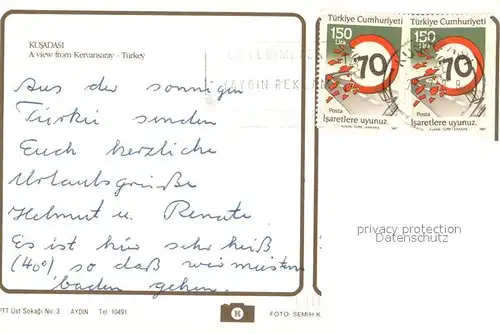 KUŞADASI
A view from Kervansaray - Turkey
Aus der sonnigen
Türkei senden
Euch herzliche
Urlaubsgrüße
Helmut u. Renate.
Es ist hier sehr heiß
(40°) so daß wir meistens
baden gehen.
PTT Üst Sokağı No. 3 AYDIN Tel 10491
FOTO SEMİH K
Türkiye Cumhuriyeti
150
Lira
70
Posta
İşaretlere uyunuz.
1987
Türkiye Cumhuriyeti
150
70
Posta
İşaretlere uyunuz.
1987
AYDIN REKLAM
privacy protection
Datenschutz